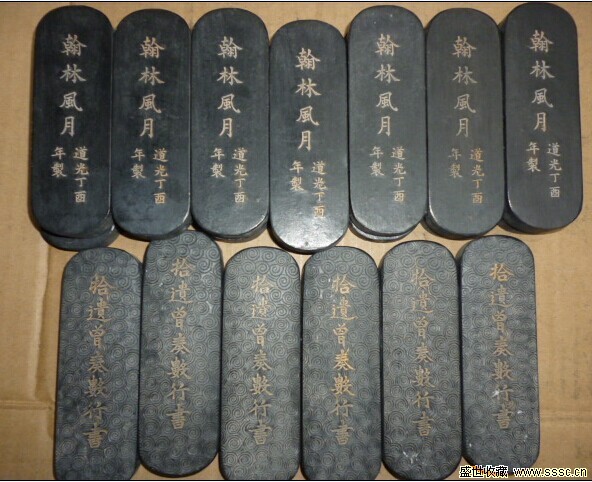 翰林風月
道光丁酉
年製
翰林風月
道光丁酉
年製
翰林風月
道光丁酉
年製
翰林風月
道光丁酉
年製
翰林風月
道光丁酉
年製
翰林風月
道光丁酉
年製
翰林風月
道光丁酉
年製
拾遺曾奏數行書
拾遺曾奏數行書
拾遺曾奏數行書
拾遺曾奏數行書
拾遺曾奏數行書
拾遺曾奏數行書
盛世收藏 www.sssc.cn